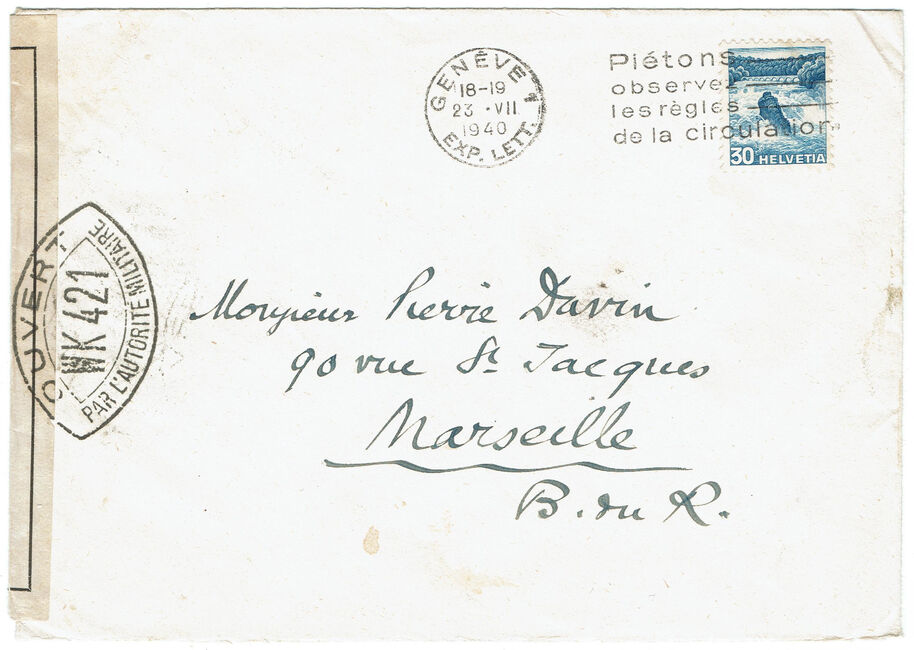 GENÈVE 1
18-19
23.VII
1940
EXP. LETT.
Piétons
observez
les règles
de la circulation
30 HELVETIA
OUVERT
WK 421
PAR L'AUTORITÉ MILITAIRE
Monsieur Pierre Davin
90 rue St Jacques
Marseille
B. du R.